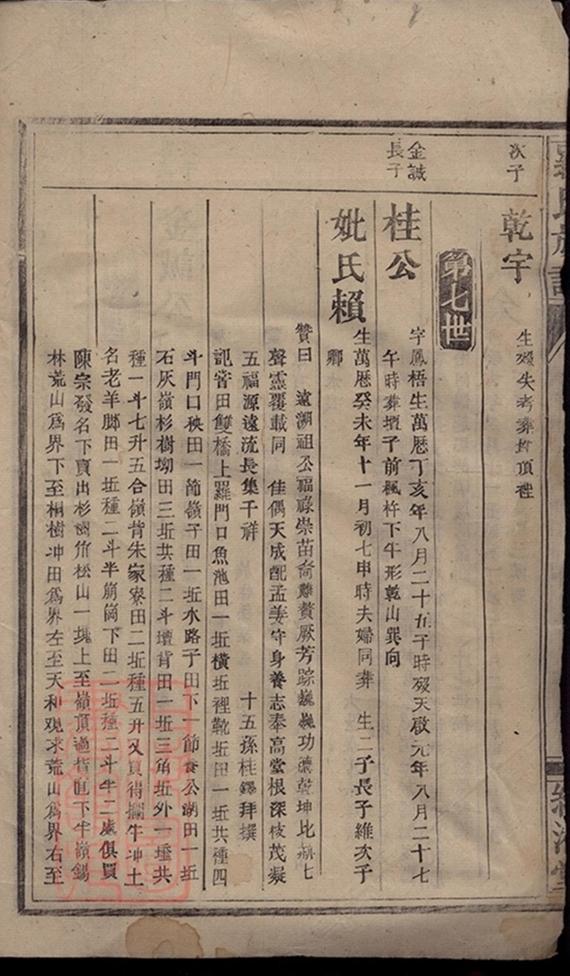 次子
乾宇
生歿失考葬
頂裡
第七世
金誠
長子
桂公
字鳳梧生萬曆丁亥年八月二十五子時歿天啟元年八月二十七
午時葬壇子前楓杵下牛形乾山巽向
妣氏賴
生萬曆癸未年十一月初七申時夫婦同葬 生二子長子維次子
卿
贊曰 遠湖祖公福祿崇苗裔難贊厥芳踪巍巍功德乾坤比
聲靈覆載同 佳偶天成配孟姜守身養志奉高堂根深枝茂凝
五福源遠流長集千祥 十五孫桂鐸拜撰
記嘗田雙橋上羅門口魚池田一坵橫坵裡靴坵田一坵共種四
斗門口秧田一節嶺子田一坵水路子田下一節食公湖田一坵
石灰嶺杉樹坳田三坵共種二斗壇背田一坵三角坵外一坵共
種一斗七升五合嶺背朱家寮田二坵種五升又買得攔牛冲土
名老羊腳田一坵種二斗半崩崗下田二坵種二斗半二處俱買
陳宗發名下賣出杉樹角松山一塊上至嶺頂過指直下牛嶺錫
林荒山為界下至桐樹冲田為界左至天和观求荒山為界右至